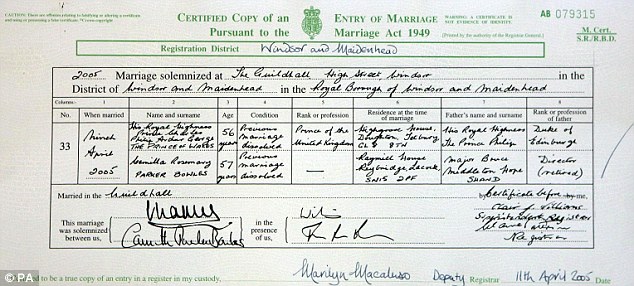 CERTIFIED COPY of an ENTRY OF MARRIAGE
Pursuant to the Marriage Act 1949
AB 079315
M. Cert.
S.R./R.B.D.
Registration District Windsor and Maidenhead
2005 Marriage solemnized at The Guildhall High Street Windsor in the
District of Windsor and Maidenhead in the Royal Borough of Windsor and Maidenhead
Columns :- 1 2 3 4 5 6 7 8
No. When married Name and surname Age Condition Rank or profession Residence at the time of marriage Father's name and surname Rank or profession of father
33
Ninth
April
2005
His Royal Highness
Prince Charles
Philip Arthur George
THE PRINCE OF WALES
56
years
Previous
marriage
dissolved
Prince of the
United Kingdom
Highgrove House,
Doughton, Tetbury
GL8 8TN
His Royal Highness
The Prince Philip
Duke of
Edinburgh
Camilla Rosemary
PARKER BOWLES
57
years
Previous
marriage
dissolved
—
Raymill House
Reybridge, Lacock
SN15 2PF
Major Bruce
Middleton Hope
SHAND
Director
(retired)
Married in the Guildhall
Certificate before by me,
This marriage was solemnized between us,
Camilla Parker Bowles
in the presence of us,
Superintendent Registrar
Registrar
to be a true copy of an entry in a register in my custody,
Marilyn Macaluso Deputy Registrar 11th April 2005 Date
© PA